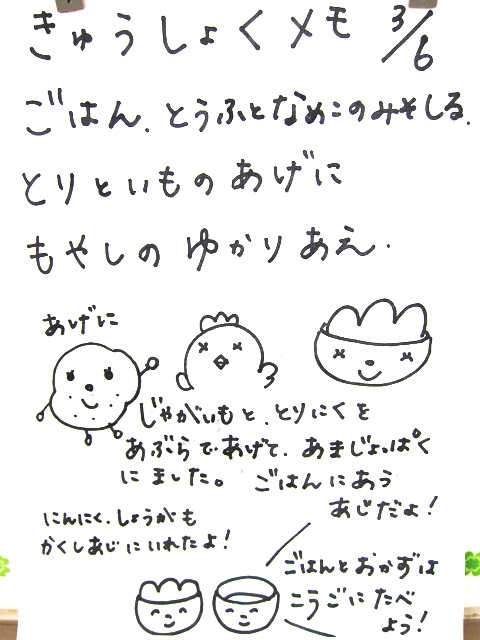 きゅうしょくメモ 3/6
ごはん、とうふとなめこのみそしる、
とりといものあげに
もやしのゆかりあえ.
あげに
じゃがいもと、とりにくを
あぶらであげて、あまじょっぱく
にました。ごはんにあう
あじだよ!
にんにく、しょうがも
かくしあじにいれたよ!
ごはんとおかずは
こうごにたべ
よう!